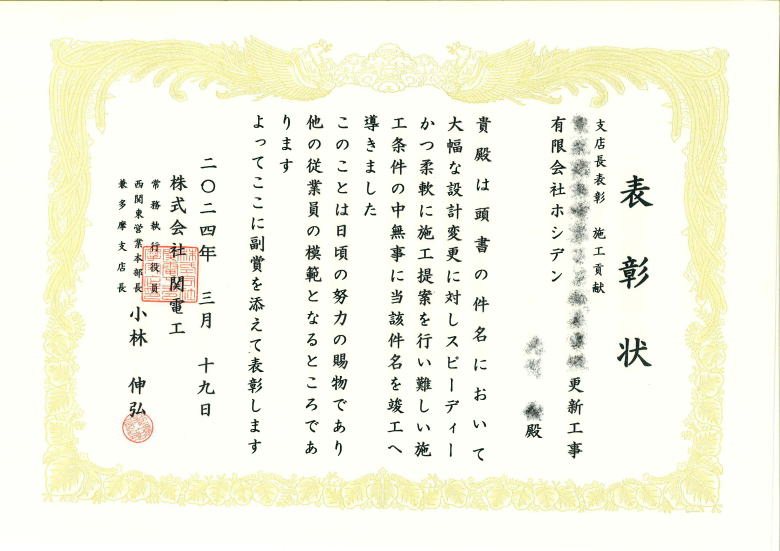 表彰状
支店長表彰　施工貢献
更新工事
有限会社ホシデン
殿
貴殿は頭書の件名において
大幅な設計変更に対しスピーディー
かつ柔軟に施工提案を行い難しい施
工条件の中無事に当該件名を竣工へ
導きました
このことは日頃の努力の賜物であり
他の従業員の模範となるところであ
ります
よってここに副賞を添えて表彰します
二〇二四年　三月　十九日
株式会社　関電工
常務執行役員
西関東営業本部長
兼多摩支店長
小林　伸弘